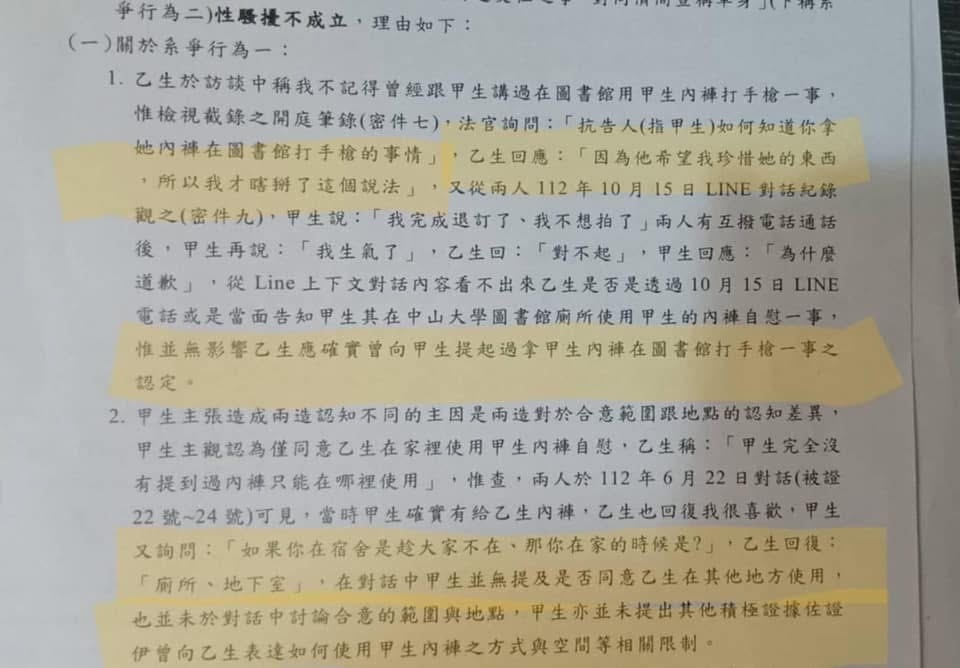 爭行為二)性騷擾不成立，理由如下：
(一)關於系爭行為一：
1. 乙生於訪談中稱我不記得曾經跟甲生講過在圖書館用甲生內褲打手槍一事，
惟檢視截錄之開庭筆錄(密件七)，法官詢問：「抗告人(指甲生)如何知道你拿
她內褲在圖書館打手槍的事情」，乙生回應：「因為他希望我珍惜她的東西
，所以我才瞎掰了這個說法」，又從兩人 112 年 10 月 15 日 LINE 對話紀錄
觀之(密件九)，甲生說：「我完成退訂了、我不想拍了」兩人有互撥電話通話
後，甲生再說：「我生氣了」，乙生回：「對不起」，甲生回應：「為什麼
道歉」，從 Line 上下文對話內容看不出來乙生是否是透過 10 月 15 日 LINE
電話或是當面告知甲生其在中山大學圖書館廁所使用甲生的內褲自慰一事，
惟並無影響乙生應確實曾向甲生提起過拿甲生內褲在圖書館打手槍一事之
認定。
2. 甲生主張造成兩造認知不同的主因是兩造對於合意範圍跟地點的認知差異，
甲生主觀認為僅同意乙生在家裡使用甲生內褲自慰，乙生稱：「甲生完全沒
有提到過內褲只能在哪裡使用」，惟查，兩人於 112 年 6 月 22 日對話(被證
22 號~24 號)可見，當時甲生確實有給乙生內褲，乙生也回復我很喜歡，甲生
又詢問：「如果你在宿舍是趁大家不在、那你在家的時候是?」，乙生回復：
「廁所、地下室」，在對話中甲生並無提及是否同意乙生在其他地方使用，
也並未於對話中討論合意的範圍與地點，甲生亦並未提出其他積極證據佐證
伊曾向乙生表達如何使用甲生內褲之方式與空間等相關限制。